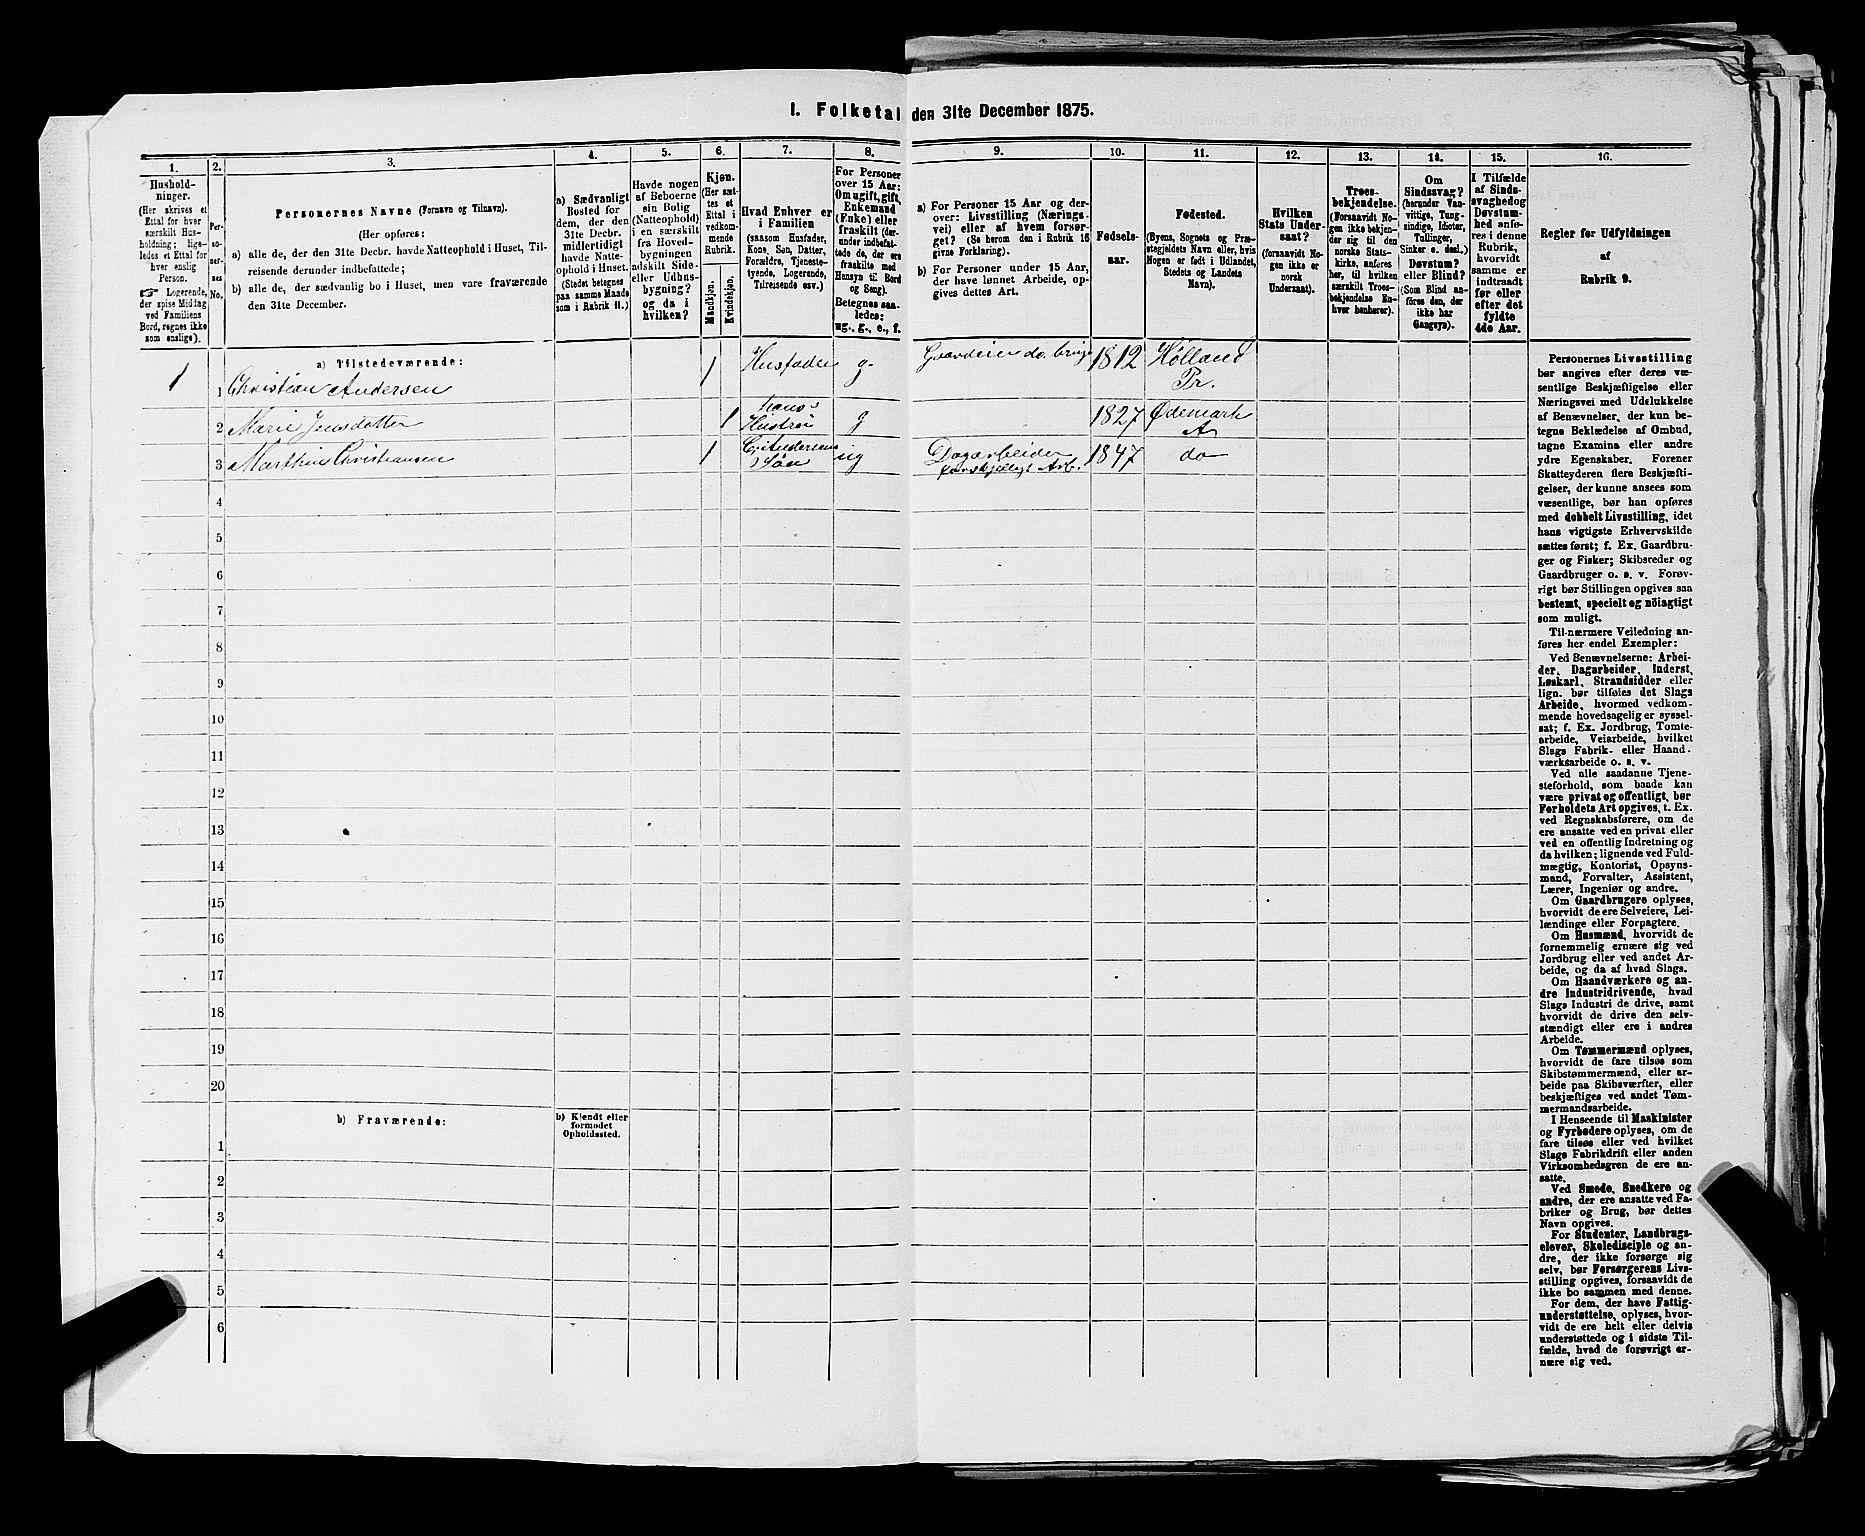 I. Folketal den 31te December 1875.
1.
2.
3.
4.
5.
6.
7.
8.
9.
10.
11.
12.
13.
14.
15.
16.
Hushold-
ninger.
(Her skrives et
Ettal for hver
særskilt Hus-
holdning; lige-
ledes et Ettal
for hver
enslig
Person.
☞ Logerende,
der spise Middag
ved Familiens
Bord, regnes ikke
som enslige).
Per-
so-
ner-
nes
No.
Personernes Navne (Fornavn og Tilnavn).
(Her opføres:
a) alle de, der den 31te Decbr. havde Natteophold i Huset, Til-
reisende derunder indbefattede;
b) alle de, der sædvanlig bo i Huset, men vare fraværende
den 31te December.
a) Sædvanligt
Bosted for
dem, der den
31te Decbr.
midlertidigt
havde Natte-
ophold i Huset.
(Stedet betegnes
paa samme Maade
som i Rubrik 11.)
Havde nogen
af Beboerne
sin Bolig
(Natteophold)
i en særskilt
fra Hoved-
bygningen
adskilt Side-
eller Udhus-
bygning?
og da i
hvilken?
Kjøn.
(Her sæt-
tes et
Ettal i
vedkom-
mende
Rubrik.
Mandkjøn.
Kvindekjøn.
Hvad Enhver er
i Familien
(saasom Husfader,
Kone, Søn, Datter,
Forældre, Tjeneste-
tyende, Logerende,
Tilreisende osv.)
For Personer
over 15 Aar:
Om ugift, gift,
Enkemand
(Enke) eller
fraskilt (der-
under indbefat-
tede de, der ere
fraskilte med
Hensyn til Bord
og Seng).
Betegnes saa-
ledes:
ug., g., e., f.
a) For Personer 15 Aar og der-
over: Livsstilling (Nærings-
vei) eller af hvem forsør-
get? (Se herom den i Rubrik 16
givne Forklaring).
b) For Personer under 15 Aar,
der have lønnet Arbeide, op-
gives dettes Art.
Fødsels-
aar.
Fødested.
(Byens, Sognets og Præ-
stegjeldets Navn eller, hvis
Nogen er født i Udlandet,
Stedets og Landets
Navn).
Hvilken
Stats Under-
saat?
(forsaavidt No-
gen ikke er
norsk
Undersaat).
Troes-
bekjendelse.
(Forsaavidt No-
gen ikke bekjen-
der sig til den
norske Stats-
kirke, anføres
her, til hvilken
særskilt Troes-
bekjendelse En-
hver henhører).
Om
Sindssvag?
(herunder Van-
vittige, Tung-
sindige, Idioter,
Tullinger,
Sinker o. desl.)
Døvstum?
eller Blind?
(Som Blind an-
føres den, der
ikke har
Gangsyn).
I Tilfælde
af Sinds-
svaghed og
Døvstum-
hed anfø-
res i denne
Rubrik,
hvorvidt
samme er
indtraadt
før eller
efter det
fyldte
4de Aar.
Regler for Udfyldningen
af
Rubrik 9.
a) Tilstedeværende:
1 1 Christian Andersen 1 Husfader g. Gaardeier do. brug 1812 Hølland
Pr.
2 Marie Jensdatter 1 hans
Hustru g 1827 Ødemark
A
3 Marthin Christiansen 1 Chr Andersens
Søn ug Dagarbeider
forskjelligt Arb. 1847 do
4
5
6
7
8
9
10
11
12
13
14
15
16
17
18
19
20
b) Fraværende:
b) Kjendt eller
formodet
Opholdssted.
1
2
3
4
5
6
Personernes Livsstilling
bør angives efter deres væ-
sentlige Beskjæftigelse eller
Næringsvei med Udelukkelse
af Benævnelser, der kun be-
tegne Beklædelse af Ombud,
tagne Examina eller andre
ydre Egenskaber. Forener
Skatteyderen flere Beskjæfti-
gelser, der kunne ansees som
væsentlige, bør han opføres
med dobbelt Livsstilling, idet
hans vigtigste Erhvervskilde
sættes først; f. Ex. Gaardbru-
ger og Fisker; Skibsreder og
Gaardbruger o. s. v. Forøv-
rigt bør Stillingen opgives saa
bestemt, specielt og nöiagtigt
som muligt.
Til nærmere Veiledning an-
føres her endel Exempler:
Ved Benævnelserne: Arbei-
der, Dagarbeider, Inderst,
Løskarl, Strandsidder eller
lign. bør tilføies det Slags
Arbeide, hvormed vedkom-
mende hovedsagelig er syssel-
sat; f. Ex. Jordbrug, Tomte-
arbeide, Veiarbeide, hvilket
Slags Fabrik- eller Haand-
værksarbeide o. s. v.
Ved alle saadanne Tjene-
steforhold, som baade kan
være privat og offentligt, bør
Forholdets Art opgives, f. Ex.
ved Regnskabsførere, om de
ere ansatte ved en privat eller
ved en offentlig Indretning og
da hvilken; lignende ved Fuld-
mægtig, Kontorist, Opsyns-
mand, Forvalter, Assistent,
Lærer, Ingeniør og andre.
Om Gaardbrugere oplyses,
hvorvidt de ere Selveiere, Lei-
lændinge eller Forpagtere.
Om Husmænd, hvorvidt de
fornemmelig ernære sig ved
Jordbrug eller ved andet Ar-
beide, og da af hvad Slags.
Om Haandværkere og an-
dre Industridrivende, hvad
Slags Industri de drive, samt
hvorvidt de drive den selv-
stændigt eller ere i andres
Arbeide.
Om Tømmermænd oplyses,
hvorvidt de fare tilsøs som
Skibstømmermænd, eller ar-
beide paa Skibsværfter, eller
beskjæftiges ved andet Tøm-
mermandsarbeide.
I Henseende til Maskinister
og Fyrbødere oplyses, om de
fare tilsøs eller ved hvilket
Slags Fabrikdrift eller anden
Virksomhedsgren de ere an-
satte.
Ved Smede, Snedkere og
andre, der ere ansatte ved Fa-
briker og Brug, bør dettes
Navn opgives.
For Studenter, Landbrugs-
elever, Skoledisciple og an-
dre, der ikke forsørge sig
selv, bør Forsørgerens Livs-
stilling opgives, forsaavidt de
ikke bo sammen med denne.
For dem, der have Fattig-
understøttelse, oplyses, hvor-
vidt de ere helt eller delvis
understøttede og i sidste Til-
fælde, hvad de forøvrigt er-
nære sig ved.